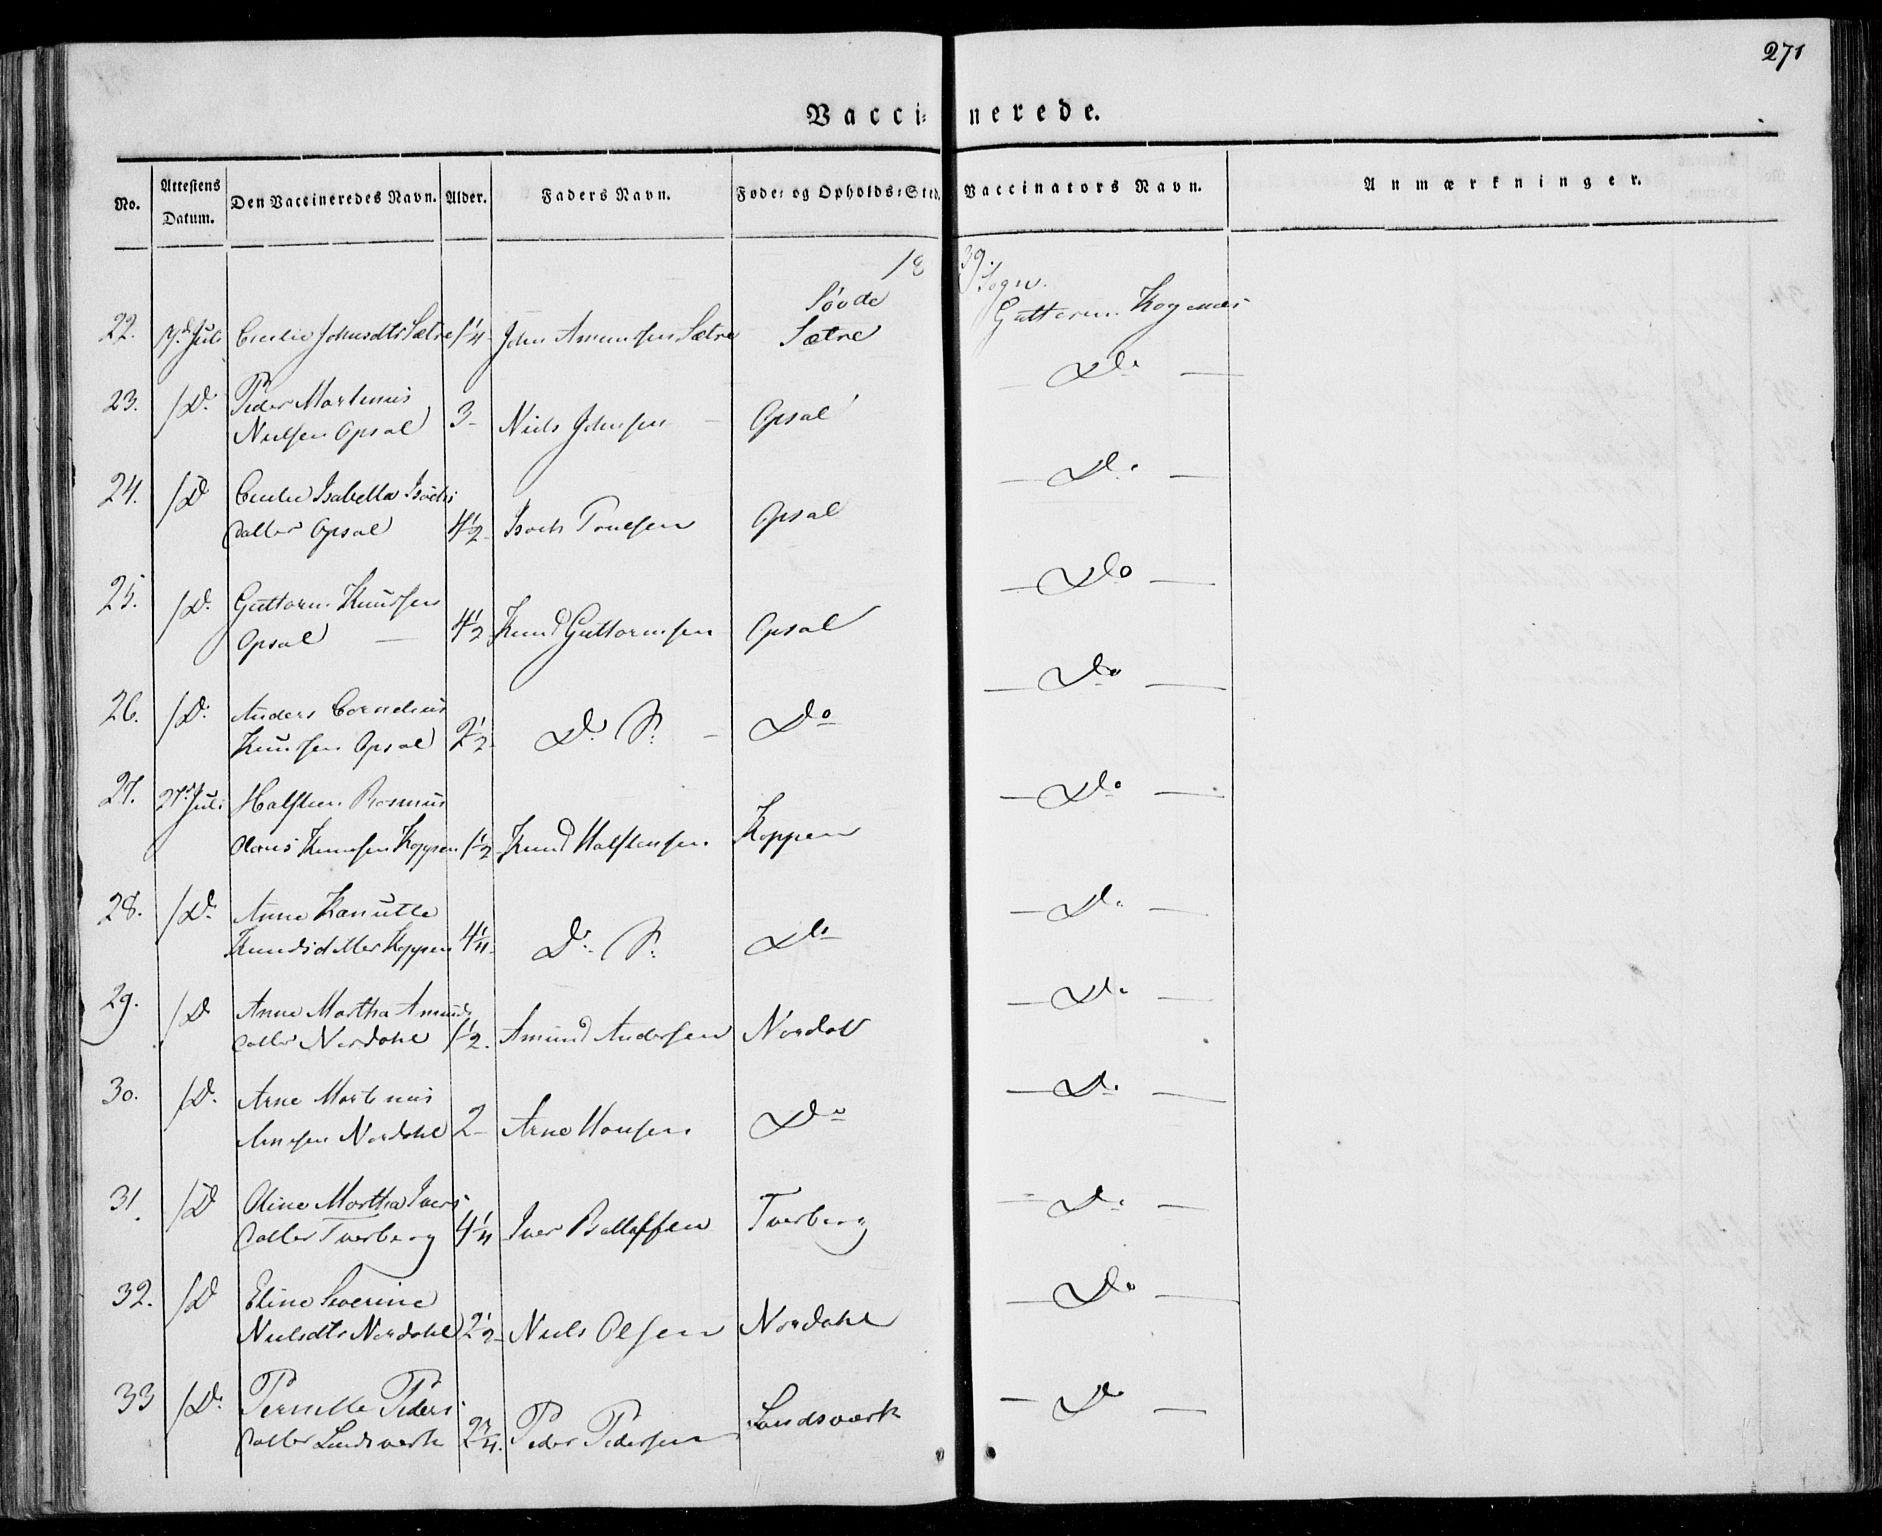 271
Vaccinerede.
No. Attestens Datum. Den Vaccineredes Navn. Alder. Faders Navn. Føde- og Opholds-Sted. Vaccinators Navn. Anmærkninger.
1839.
Søvde Sogn.
22. Juli Cecilie Johnsdtr Sætre 1 1/4 John Amunsen Sætre Sætre Guttorm Kogenæs
23. /D. Peder Martinus
Nielsen Opsal 3 - Niels Johnsen - Opsal — Do —
24. /D Cecilie Isabella Isachs
datter Opsal 4 1/2 Isach Poulsen Opsal — Do —
25. /D. Guttorm Knudsen
Opsal — 4 1/2 Knud Guttormsen Opsal — Do —
26. /D. Anders Cornelius
Knudsen Opsal 2 1/2 D. S. - Do — Do —
27. 27d Juli Halsten Rasmus
Olaus Knudsen Koppen 1 1/2 Knud Halstensen Koppen — Do —
28. /D. Anne Kanutte
Knudsdatter Koppen 4 1/4 D. S. Do — Do —
29. /D Anne Martha Amunds
datter Nordahl 1 1/2. Amund Andersen Nordal — Do —
30. /D. Arne Martinus
Arnesen Nordahl 2 - Arne Hansen Do — Do —
31. /D Oline Martha Ivers
datter Tverberg 4 1/4 Iver Ballessen Tverberg — Do —
32. /D Eline Severine
Nielsdtr Nordahl 2 1/2 Niels Olsen Nordahl — Do —
33 /D. Pernille Peders
datter Landsværk 2 3/4. Peder Pedersen Landsværk — Do —